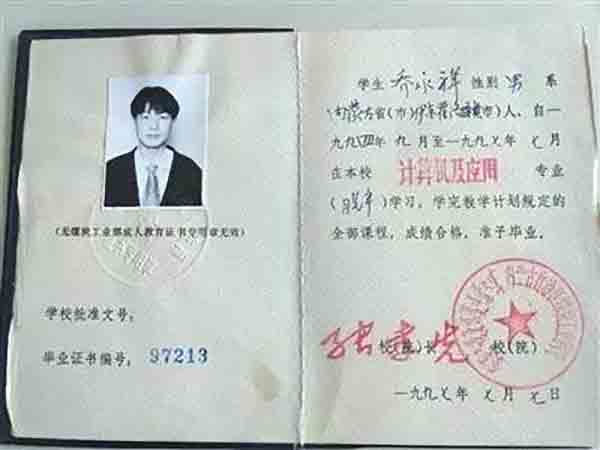 (无煤炭工业部成人教育证书专用章无效)
学校批准文号:
毕业证书编号: 97213
学生 乔永祥 性别 男 系
内蒙古省(市) 人, 自一
九九四年 九 月至一九九七年 七 月
在本校 计算机及应用 专业
(脱产)学习, 学完教学计划规定的
全部课程, 成绩合格, 准予毕业.
校(院)长 校(院)
一九九七年 七 月 七 日